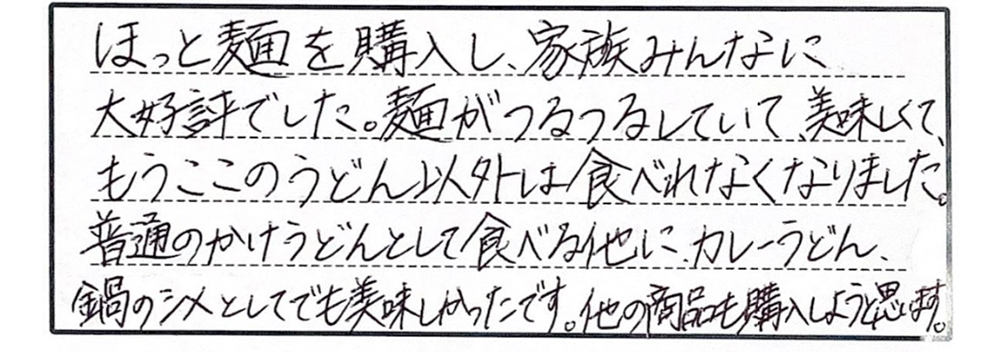 ほっと麺を購入し、家族みんなに
大好評でした。麺がつるつるしていて、美味しくて、
もうここのうどん以外は食べれなくなりました。
普通のかけうどんとして食べる他に、カレーうどん、
鍋のシメとしてでも美味しかったです。他の商品も購入しようと思います。